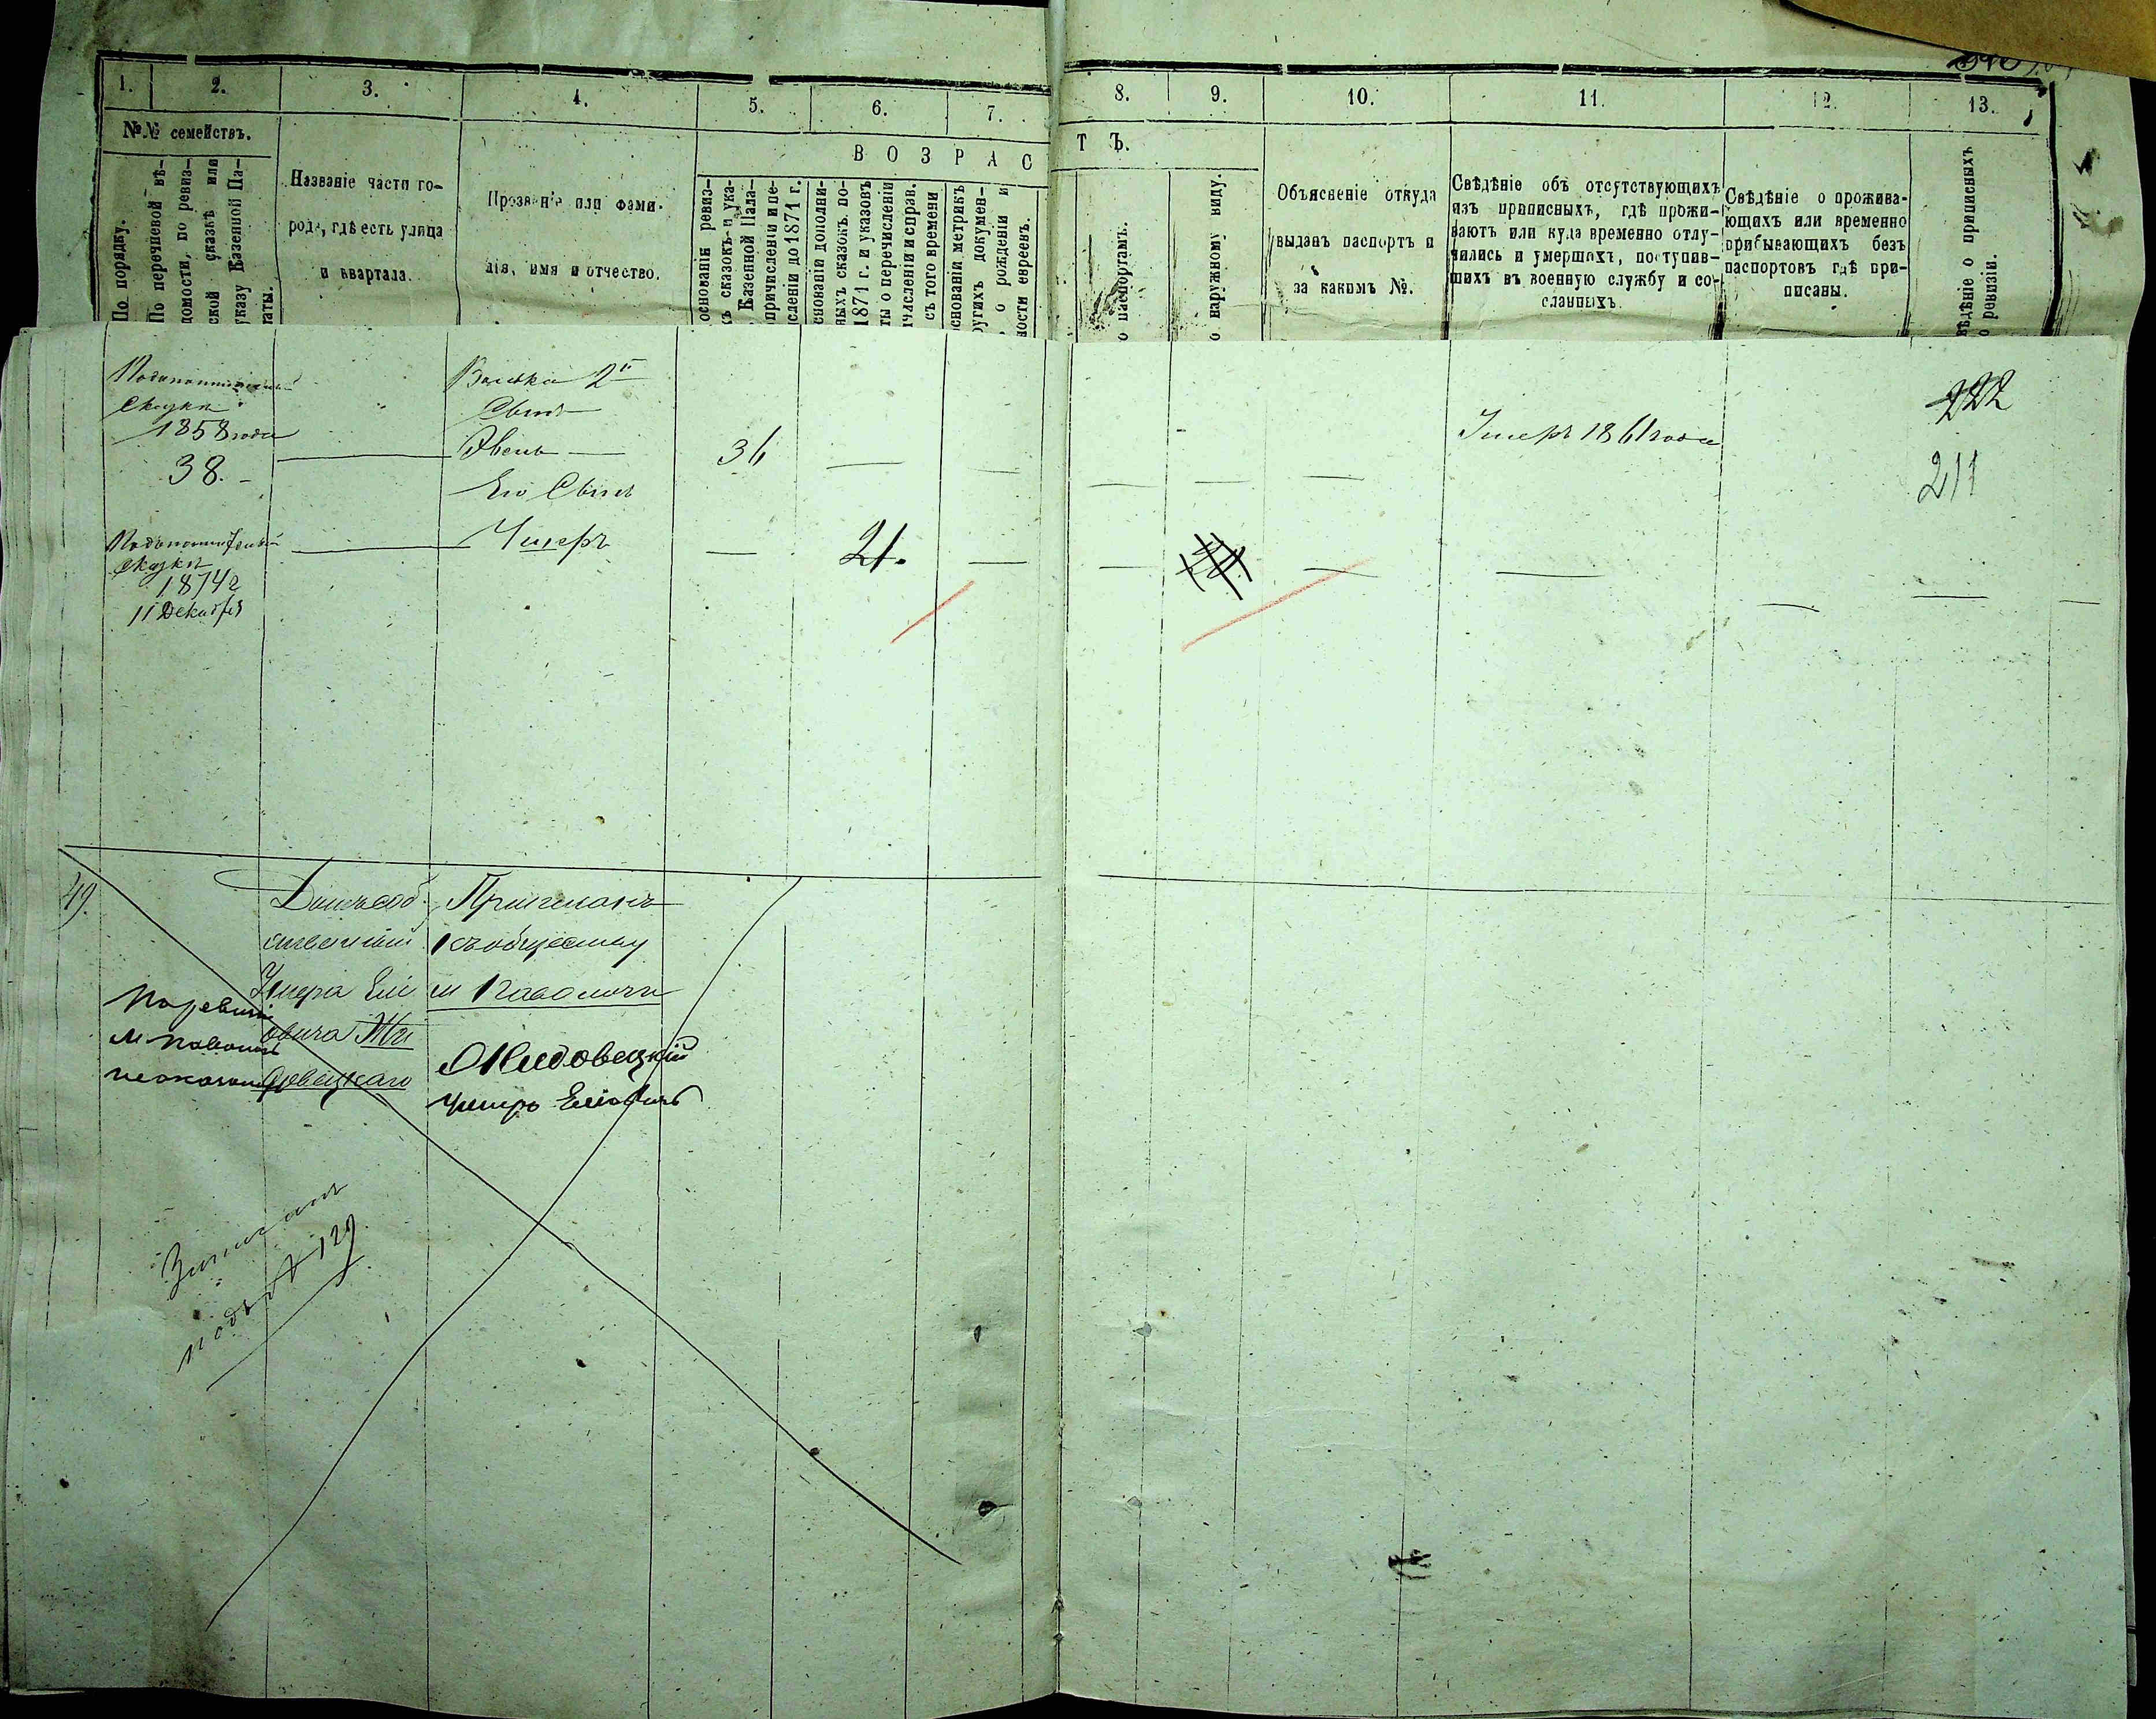 1.
2.
3.
4.
5.
6.
7.
8.
9.
10.
11.
12.
13.
№№ семействъ.
По порядку.
По перечневой вѣ-
домости, по ревиз-
ской сказкѣ или
указу Казенной Па-
латы.
Названіе части го-
рода, гдѣ есть улица
и квартала.
Прозваніе или фами-
лія, имя и отчество.
ВОЗРАС
ТЪ.
основаніи ревиз-
хъ сказокъ и ука-
Казенной Пала-
причисленіи и пе-
сленіи до 1871 г.
снованіи дополни-
ныхъ сказокъ по-
1871 г. и указовъ
ты о перечисленіи
ичисленіи и справ.
съ того времени
снованіи метрикъ
ругихъ докумен-
о рожденіи и
ности евреевъ.
о паспортамъ.
о наружному виду.
Объясненіе откуда
выданъ паспортъ и
за какимъ №.
Свѣдѣніе объ отсутствующихъ
изъ приписныхъ, гдѣ прожи-
ваютъ или куда временно отлу-
чились и умершихъ, поступив-
шихъ въ военную службу и со-
сланныхъ.
Свѣдѣніе о прожива-
ющихъ или временно
прибывающихъ безъ
паспортовъ гдѣ при-
писаны.
вѣдѣніе о приписныхъ
о ревизіи.
сказки
1858 года
38.
Волька 2й
Сынъ
Овень
Его Сынъ
36
Умеръ 1861 года
222
211
сказкѣ
1874 г
11 Декабря
21.
49.
Домъ соб
ственный
Приписанъ
къ обществу
м Паволочи
Жидовецкій
Записанъ
подъ № 129